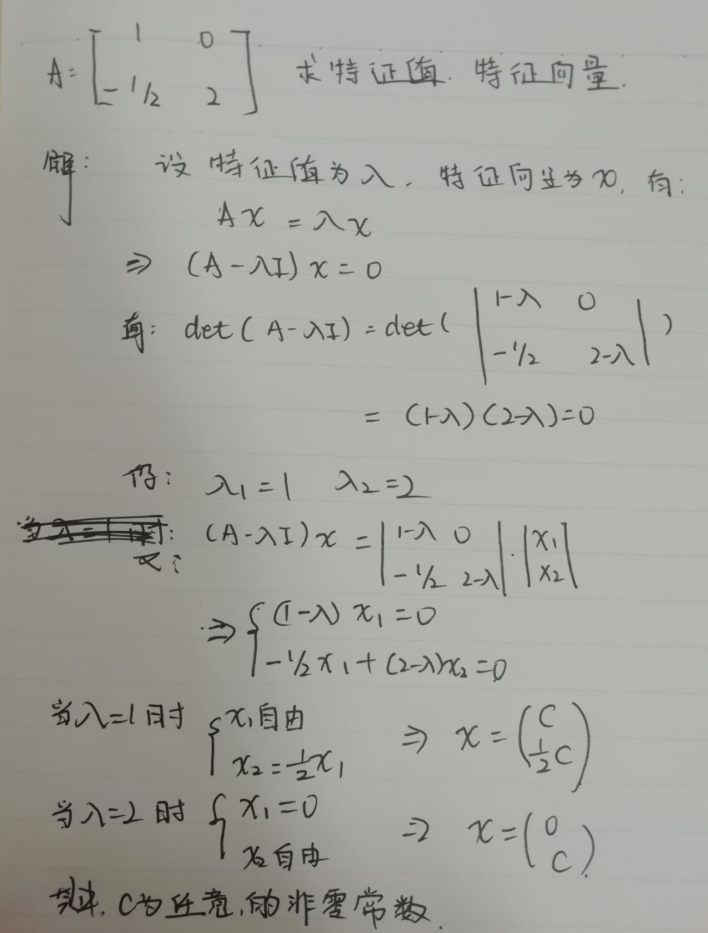 A = [1 0 -1/2 2] 求特征值. 特征向量.
解: 设特征值为λ. 特征向量为x, 有:
Ax = λx
⇒ (A-λI)x = 0
有: det(A-λI) = det(|1-λ 0 -1/2 2-λ|)
= (1-λ)(2-λ)=0
得: λ₁=1 λ₂=2
又: (A-λI)x = |1-λ 0 -1/2 2-λ|·|x₁ x₂|
⇒ { (1-λ)x₁=0
-1/2x₁+(2-λ)x₂=0
当λ=1时 { x₁自由 x₂=1/2x₁ ⇒ x=(C 1/2C)
当λ=2时 { x₁=0 x₂自由 ⇒ x=(0 C)
其中. C为任意的非零常数.